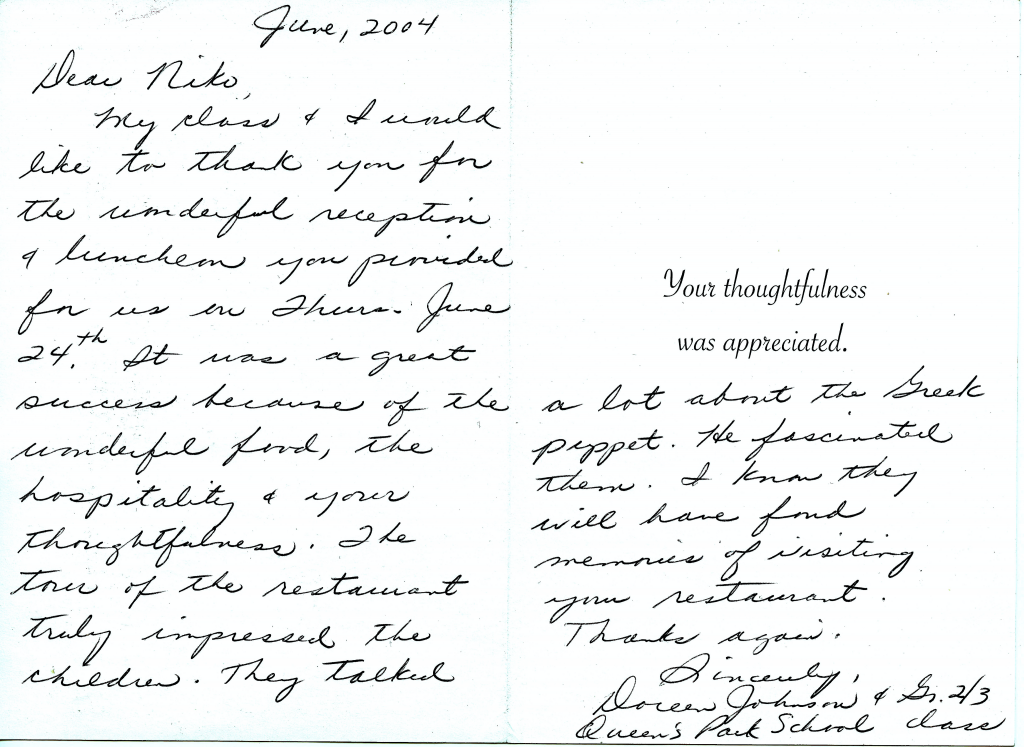 June, 2004
Dear Niko,
My class & I would
like to thank you for
the wonderful reception
& luncheon you provided
for us on Thurs. June
24th. It was a great
success because of the
wonderful food, the
hospitality & your
thoughtfulness. The
tour of the restaurant
truly impressed the
children. They talked
Your thoughtfulness
was appreciated.
a lot about the Greek
puppet. He fascinated
them. I know they
will have fond
memories of visiting
your restaurant.
Thanks again.
Sincerely,
Doreen Johnson & Gr. 2/3
Queen's Park School class